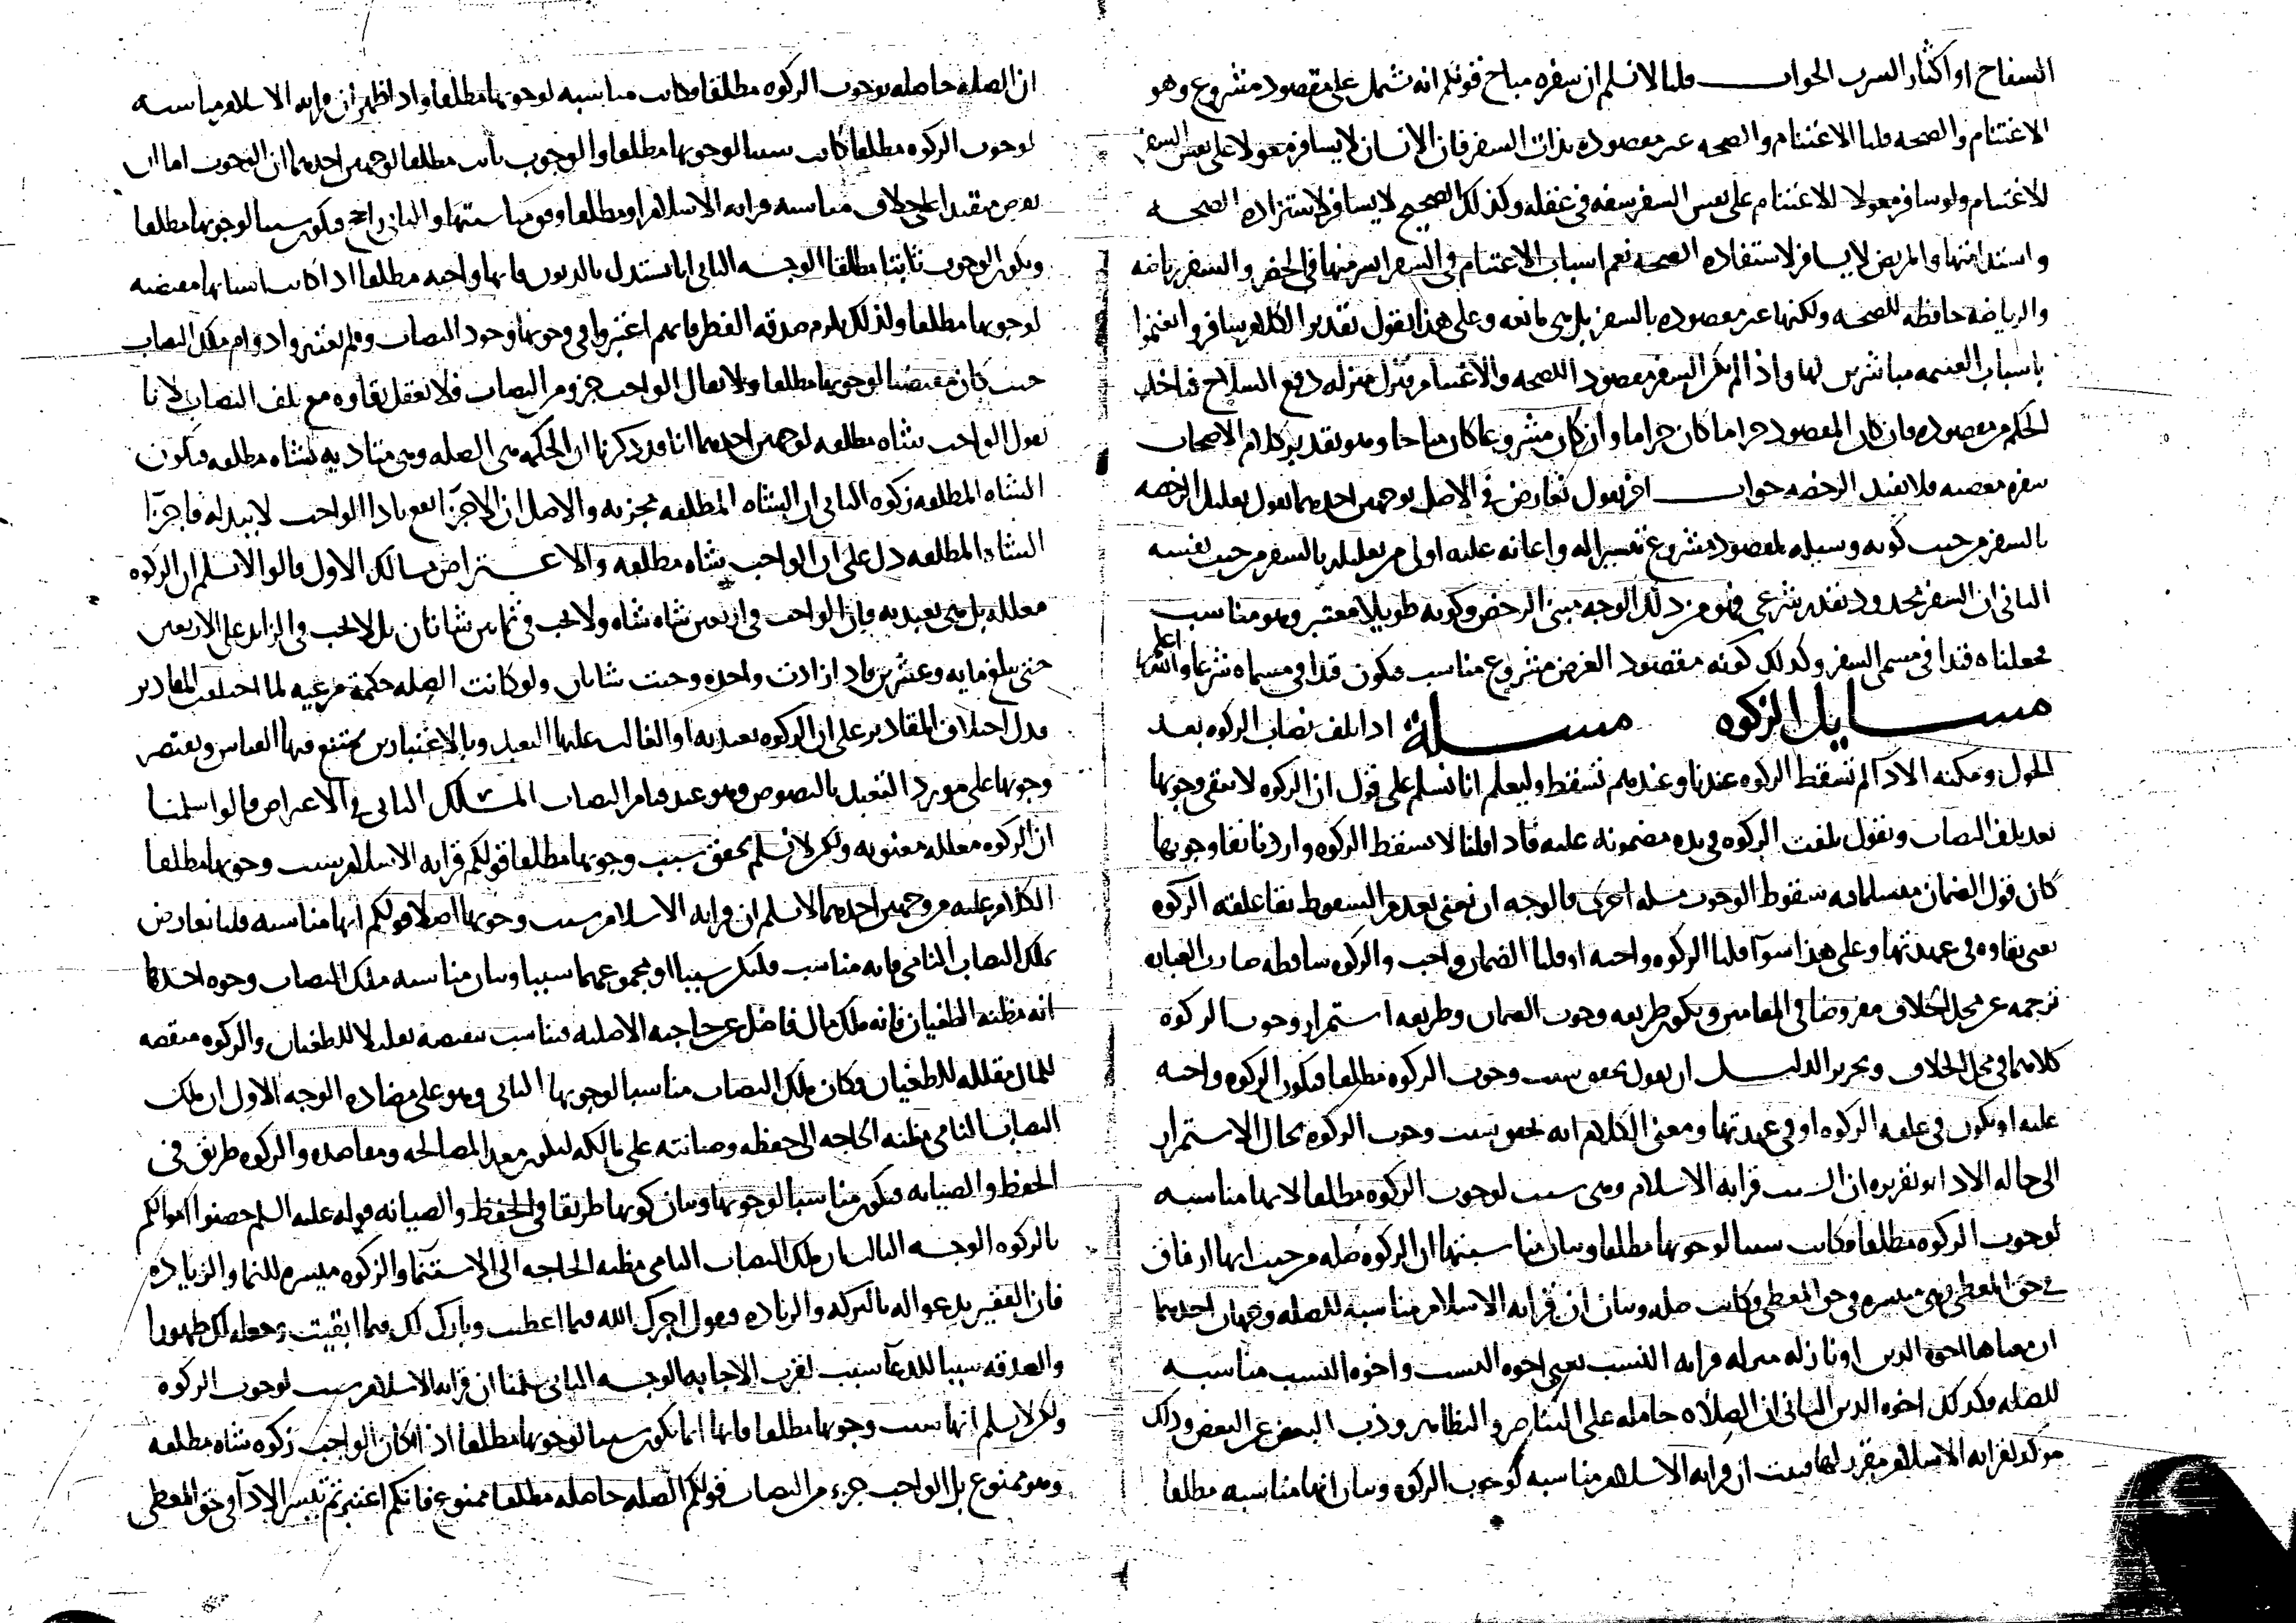 السفاح او اكثار السرب الجواب قلنا لا نسلم ان سفره مباح قولكم انه يشمل على مقصود مشروع وهو
الاغتنام والصحه قلنا الاغتنام والصحه غير مقصوده بذات السفر فان الانسان لا يسافر معولا على نفس السفر
للاغتنام ولو سافر معولا للاغتنام على نفس السفر سفه في عقله وكذلك الصحيح لا يسافر لاستزاده الصحه
واستدامتها والمريض لا يسافر لاستفاده الصحه نعم اسباب الاغتنام في السفر ايسر منها في الحضر والسفر رياضه
والرياضه حافظه للصحه ولكنها غير مقصوده بالسفر بل هي تابعه وعلى هذا نقول تقدير الكلام سافروا تغنموا
باسباب الغنيمه مباشرين لها واذا لم يكن السفر مقصود الصحه والاغتنام ينزل منزله دفع السلاح فتاخذ
الحكم من مقصوده فان كان المقصود حراما كان حراما وان كان مشروعا كان مباحا وهو تقدير كلام الاصحاب
سفره معصيه فلا يفيد الرخصه جواب اخر نقول تعارض في الاصل بوجهين احدهما نقول تعليل الرخصه
بالسفر من حيث كونه وسيله لمقصود مشروع تيسيرا له واعانه عليه اولى من تعليله بالسفر من حيث نفسه
الثاني ان السفر محدود بقدر شرعي وهو من ذلك الوجه مبنى الرخص وكونه طويلا معتبر وهو مناسب
فجعلناه قيدا في مسمى السفر وكذلك كونه مقصود الغرض مشروع مناسب فيكون قيدا في مسماه شرعا والله اعلم
مسايل الزكوه مسلة اذا تلف نصاب الزكوه بعد
الحول ومكنه الادآ لم تسقط الزكوه عندنا وعندهم تسقط وليعلم انا نسلم على قول ان الزكوه لا يبقى وجوبها
بعد تلف النصاب ونقول تلفت الزكوه في يده مضمونه عليه فاذا قلنا لا تسقط الزكوه واردنا بقا وجوبها
كان قول الضمان مسلما فيه سقوط الوجوب مسله اخرى فالوجه ان نعني بعدم السقوط بقا علقه الزكوه
يعني بقاوه في عهدتها وعلى هذا سوآ قلنا الزكوه واجبه او قلنا الضمان واجب والزكوه ساقطه صارت العباره
ترجمه عن محل الخلاف مفروضا في المقامين ويكون طريقه وجوب الضمان وطريقه استمرار وجوب الزكوه
كلاهما في محل الخلاف وتحرير الدليل ان نقول تحقق سبب وجوب الزكوه مطلقا فيكون الزكوه واجبه
عليه او يكون في علقه الزكوه او في عهدتها ومعنى الكلام انه تحقق سبب وجوب الزكوه بحال الاستمرار
الى حاله الادا وتقريره ان السبب قرابه الاسلام وهي سبب لوجوب الزكوه مطلقا لانها مناسبه
لوجوب الزكوه مطلقا وكانت سببا لوجوبها مطلقا وبيان مناسبتها ان الزكوه صله من حيث انها ارفاق
في حق المعطى وهي ميسره في حق المعطي وكانت صله وبيان ان قرابه الاسلام مناسبه للصله وجهان احدهما
ان معناها اخوه الدين او نازله منزله قرابه النسب يعني اخوه النسب واخوه النسب مناسبه
للصله فكذلك اخوه الدين الثاني ان الصلاه حامله على التناصر والتظاهر وذب البعض عن البعض وذلك
موكد لقرابه الاسلام مقرر لها فثبت ان قرابه الاسلام مناسبه لوجوب الزكوه وبيان انها مناسبه مطلقا
ان الصله حاصله بوجوب الزكوه مطلقا وكانت مناسبه لوجوبها مطلقا واذا ظهر ان قرابه الاسلام مناسبه
لوجوب الزكوه مطلقا كانت سببا لوجوبها مطلقا والوجوب ثابت مطلقا لوجهين احدهما ان الوجوب اما ان
يفرض مقيدا على خلاف مناسبه قرابه الاسلام او مطلقا وفق مناسبتها والثاني راجح فيكون سببا لوجوبها مطلقا
ويكون الوجوب ثابتا مطلقا الوجه الثاني انا نستدل بالديون فانها واجبه مطلقا اذا كانت اسبابها مقتضيه
لوجوبها مطلقا ولذلك يلزم صدقه الفطر فانهم اعتبروا في وجوبها وجود النصاب ولم يعتبروا دوام ملك النصاب
حيث كان مقتضيا لوجوبها مطلقا ولا يقال الواجب جزو من النصاب فلا يعقل بقاوه مع تلف النصاب لانا
نقول الواجب شاه مطلقه لوجهين احدهما انا قد ذكرنا ان الحكمه هي الصله وهي متاديه بشاه مطلقه فيكون
الشاه المطلقه زكوه الثاني ان الشاه المطلقه مجزيه والاصل ان الاجزا يقع بادا الواجب لا ببدله فاجزا
الشاه المطلقه دل على ان الواجب شاه مطلقه والاعتراض مسالك الاول قالوا لا نسلم ان الزكوه
معلله بل هي تعبديه فان الواجب في اربعين شاه شاه ولا يجب في ثمانين شاتان بل لا يجب في الزايد على الاربعين
حتى يبلغ مايه وعشرين فاذا زادت واحده وجبت شاتان ولو كانت الصله حكمة مرعيه لما اختلف المقادير
فدل اختلاف المقادير على ان الزكوه تعبديه او الغالب عليها التعبد وبالاعتبارين يمتنع فيها القياس ويقتصر
وجوبها على مورد التعبد بالنصوص وهو عند قيام النصاب المسلك الثاني في الاعتراض قالوا سلمنا
ان الزكوه معلله معنويه ولكن لا نسلم تحقق سبب وجوبها مطلقا قولكم قرابه الاسلام سبب وجوبها مطلقا
الكلام عليه من وجهين احدهما لا نسلم ان قرابه الاسلام سبب وجوبها اصلا قولكم انها مناسبه قلنا تعارض
بملك النصاب النامي فانه مناسب فليكن سببا او مجموعهما سببا وبيان مناسبه ملك النصاب وجوه احدها
انه مظنه الطغيان فانه ملك مال فاضل عن حاجته الاصليه فيناسب تنقيصه تقليلا للطغيان والزكوه منقصه
للمال مقلله للطغيان وكان ملك النصاب مناسبا لوجوبها الثاني وهو على مضاده الوجه الاول ان ملك
النصاب النامي مظنه الحاجه الى حفظه وصيانته على مالكه ليكون معدا لمصالحه ومقاصده والزكوه طريق في
الحفظ والصيانه فيكون مناسبا لوجوبها وبيان كونها طريقا في الحفظ والصيانه قوله عليه السلم حصنوا اموالكم
بالزكوه الوجه الثالث ان ملك النصاب النامي مظنه الحاجه الى الاستنمآ والزكوه ميسره للنما والزياده
فان الفقير يدعو اله بالبركه والزياده ويقول اجرك الله فيما اعطيت وبارك لك فيما ابقيت وجعله لك طهورا
والصدقه سببا للدعآ سبب لقرب الاجابه الوجه الثاني سلمنا ان قرابه الاسلام سبب لوجوب الزكوه
ولكن لا نسلم انها سبب وجوبها مطلقا فانها انما تكون سببا لوجوبها مطلقا اذا كان الواجب زكوه شاه مطلقه
وهو ممنوع بل الواجب جزء من النصاب قولكم الصله حاصله مطلقا ممنوع فانكم اعتبرتم تيسر الادآ في حق المعطي